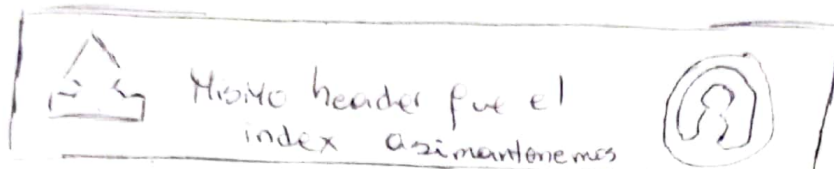 Mismo header que el
index asimantenemos